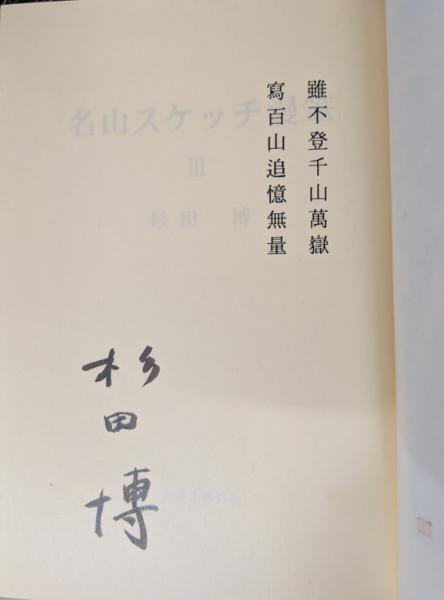 雖不登千山萬嶽
寫百山追憶無量
名山スケッチ
III
杉田 博
杉田博